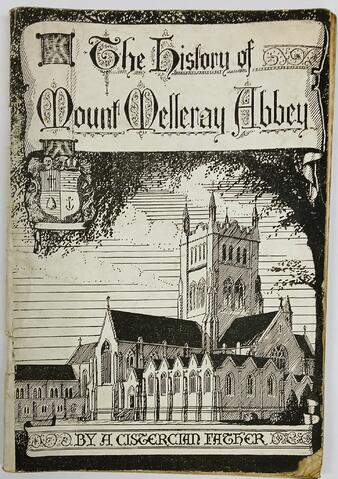 The History of
Mount Melleray Abbey
BY A CISTERCIAN FATHER